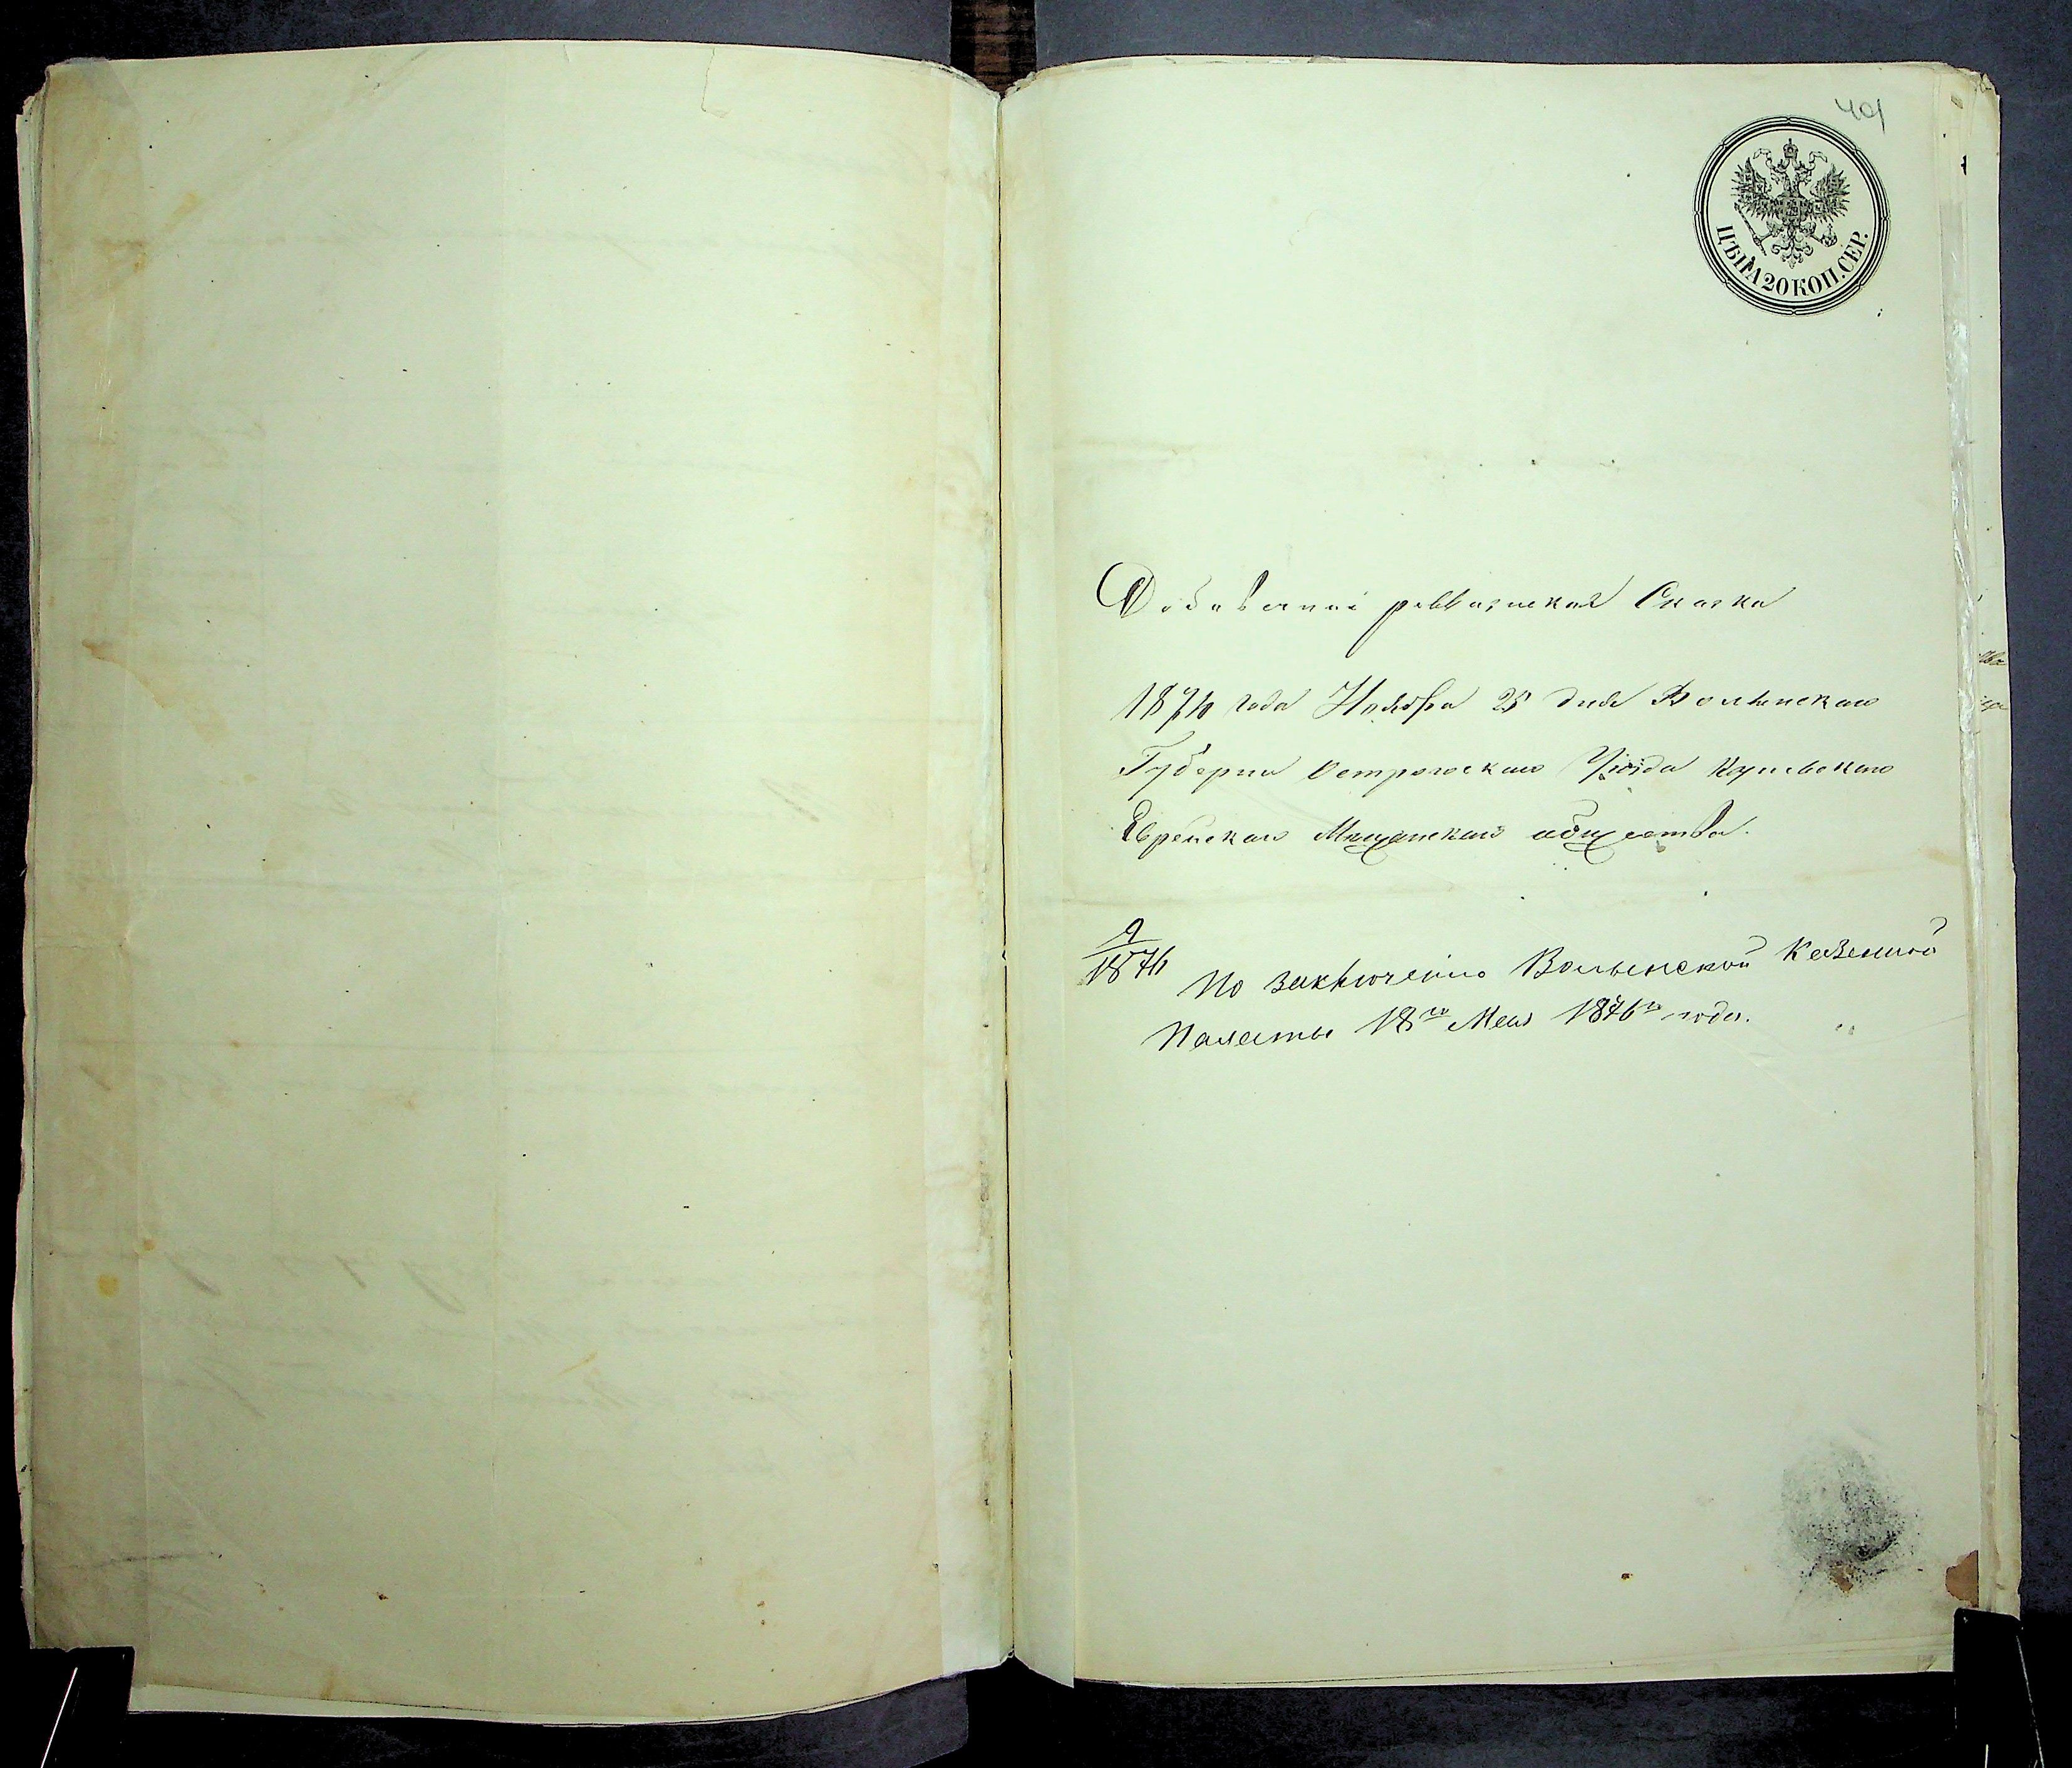 401
ЦѢНА 20 КОП. СЕР.
Добавочная ревизская Сказка
187 года Ноября 25 дня Волынской
Губернии Острожскаго Уѣзда
Еврейскаго Мѣщанскаго общества.
9
1876 По заключенію Волынской Казенной
Палаты 18го Мая 1876го года.